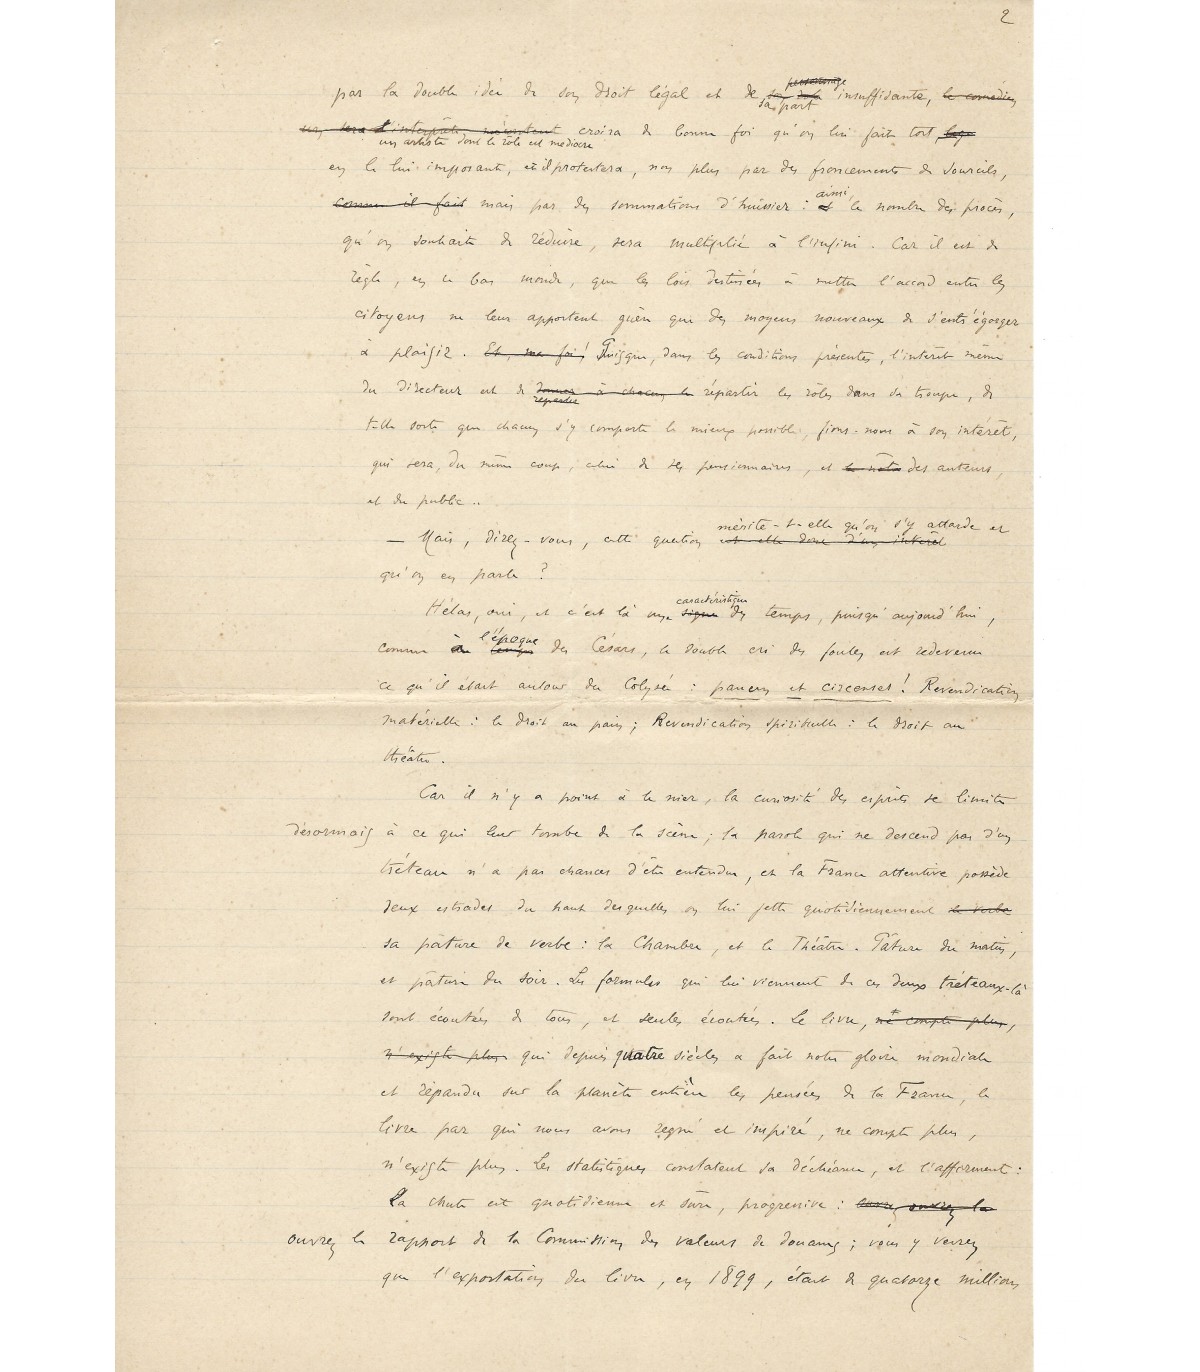 2
personnage
par la double idée de son droit légal et de son rôle insuffisante, le comédien
sa part
un, sera l'interprète mécontent croira de bonne foi qu'on lui fait tort,
un artiste dont le rôle est médiocre
en le lui imposant, et il protestera, non plus par des froncements de sourcils,
ainsi,
comme il fait mais par des sommations d'huissier : et le nombre des procès,
qu'on souhaite de réduire, sera multiplié à l'infini. Car il est de
règle, en ce bas monde, que les lois destinées à mettre l'accord entre les
citoyens ne leur apportent guère que des moyens nouveaux de s'entr'égorger
à plaisir. Et, ma foi! Puisque, dans les conditions présentes, l'intérêt même
du directeur est de donner à chacun le répartir les rôles dans sa troupe, de
répartir
telle sorte que chacun s'y comporte le mieux possible, fions-nous à son intérêt,
qui sera, du même coup, celui de ses pensionnaires, et le nôtre des auteurs,
et du public..
mérite-t-elle qu'on s'y attarde et
— Mais, direz-vous, cette question est-elle donc d'un intérêt
qu'on en parle ?
caractéristique
Hélas, oui, et c'est là une signe des temps, puisqu'aujourd'hui,
l'époque
comme au temps des Césars, le double cri des foules est redevenu
ce qu'il était autour du Colysée : panem et circenses! Revendication
matérielle : le droit au pain ; Revendication spirituelle : le droit au
théâtre.
Car il n'y a point à le nier, la curiosité des esprits se limite
désormais à ce qui leur tombe de la scène ; la parole qui ne descend pas d'un
tréteau n'a pas chances d'être entendue, et la France attentive possède
deux estrades du haut desquelles on lui jette quotidiennement le verbe
sa pâture de verbe : la Chambre, et le Théâtre. Pâture du matin,
et pâture du soir. Les formules qui lui viennent de ces deux tréteaux-là
sont écoutées de tous, et seules écoutées. Le livre, ne compte plus,
n'existe plus qui depuis quatre siècles a fait notre gloire mondiale
et répandu sur la planète entière les pensées de la France, le
livre par qui nous avons régné et inspiré, ne compte plus,
n'existe plus. Les statistiques constatent sa déchéance, et l'affirment :
La chute est quotidienne et sûre, progressive : ouvrez la
ouvrez le rapport de la Commission des valeurs de douanes ; vous y verrez
que l'exportation du livre, en 1899, était de quatorze millions